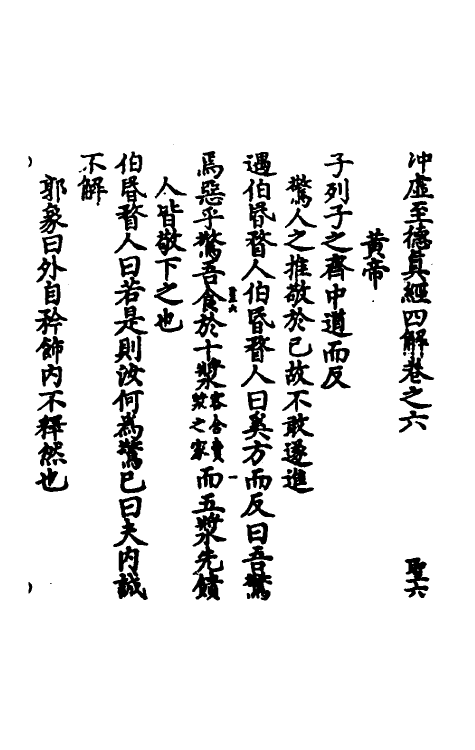 冲虛至德真經四解卷之六
聖六
黃帝
子列子之齊中道而反
驚人之推敬於己故不敢遂進
遇伯昬瞀人伯昬瞀人曰奚方而反曰吾驚
焉惡乎驚吾食於十漿客舍賣漿之家而五漿先饋
人皆敬下之也
伯昬瞀人曰若是則汝何為驚已曰夫內誠
不解
郭象曰外自矜飾內不釋然也